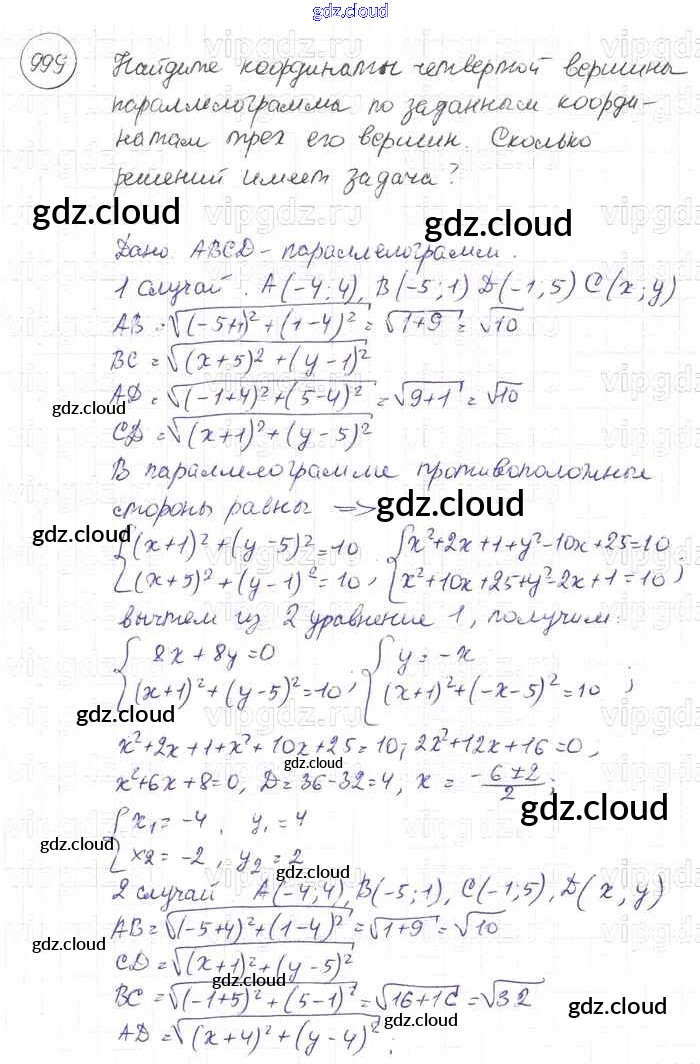 gdz.cloud
999 Найдите координаты четвертой вершины
параллелограмма по заданным коорди-
натам трех его вершин. Сколько
решений имеет задача?
gdz.cloud gdz.cloud
Дано ABCD - параллелограмм.
1 случай. A(-4;4), B(-5;1) D(-1;5) C(x;y)
AB = √((-5+1)²+(1-4)²) = √(1+9) = √10
BC = √((x+5)²+(y-1)²)
AD = √((-1+4)²+(5-4)²) = √(9+1) = √10
gdz.cloud gdz.cloud
CD = √((x+1)²+(y-5)²)
В параллелограмме противоположные
стороны равны =>
gdz.cloud
{(x+1)²+(y-5)²=10 {x²+2x+1+y²-10x+25=10
gdz.cloud gdz.cloud
{(x+5)²+(y-1)²=10, {x²+10x+25+y²-2x+1=10,
вычтем из 2 уравнение 1, получим:
{8x+8y=0 {y=-x
{(x+1)²+(y-5)²=10; {(x+1)²+(-x-5)²=10;
gdz.cloud
x²+2x+1+x²+10x+25=10; 2x²+12x+16=0,
gdz.cloud
x²+6x+8=0, D=36-32=4, x = (-6±2)/2;
gdz.cloud
{x₁=-4, y₁=4
gdz.cloud
{x2=-2, y₂=2
gdz.cloud
2 случай A(-4;4), B(-5;1), C(-1;5), D(x,y)
AB = √((-5+4)²+(1-4)²) = √(1+9) = √10
gdz.cloud gdz.cloud
CD = √((x+1)²+(y-5)²)
BC = √((-1+5)²+(5-1)²) = √(16+16) = √32
gdz.cloud
AD = √((x+4)²+(y-4)²);
gdz.cloud gdz.cloud